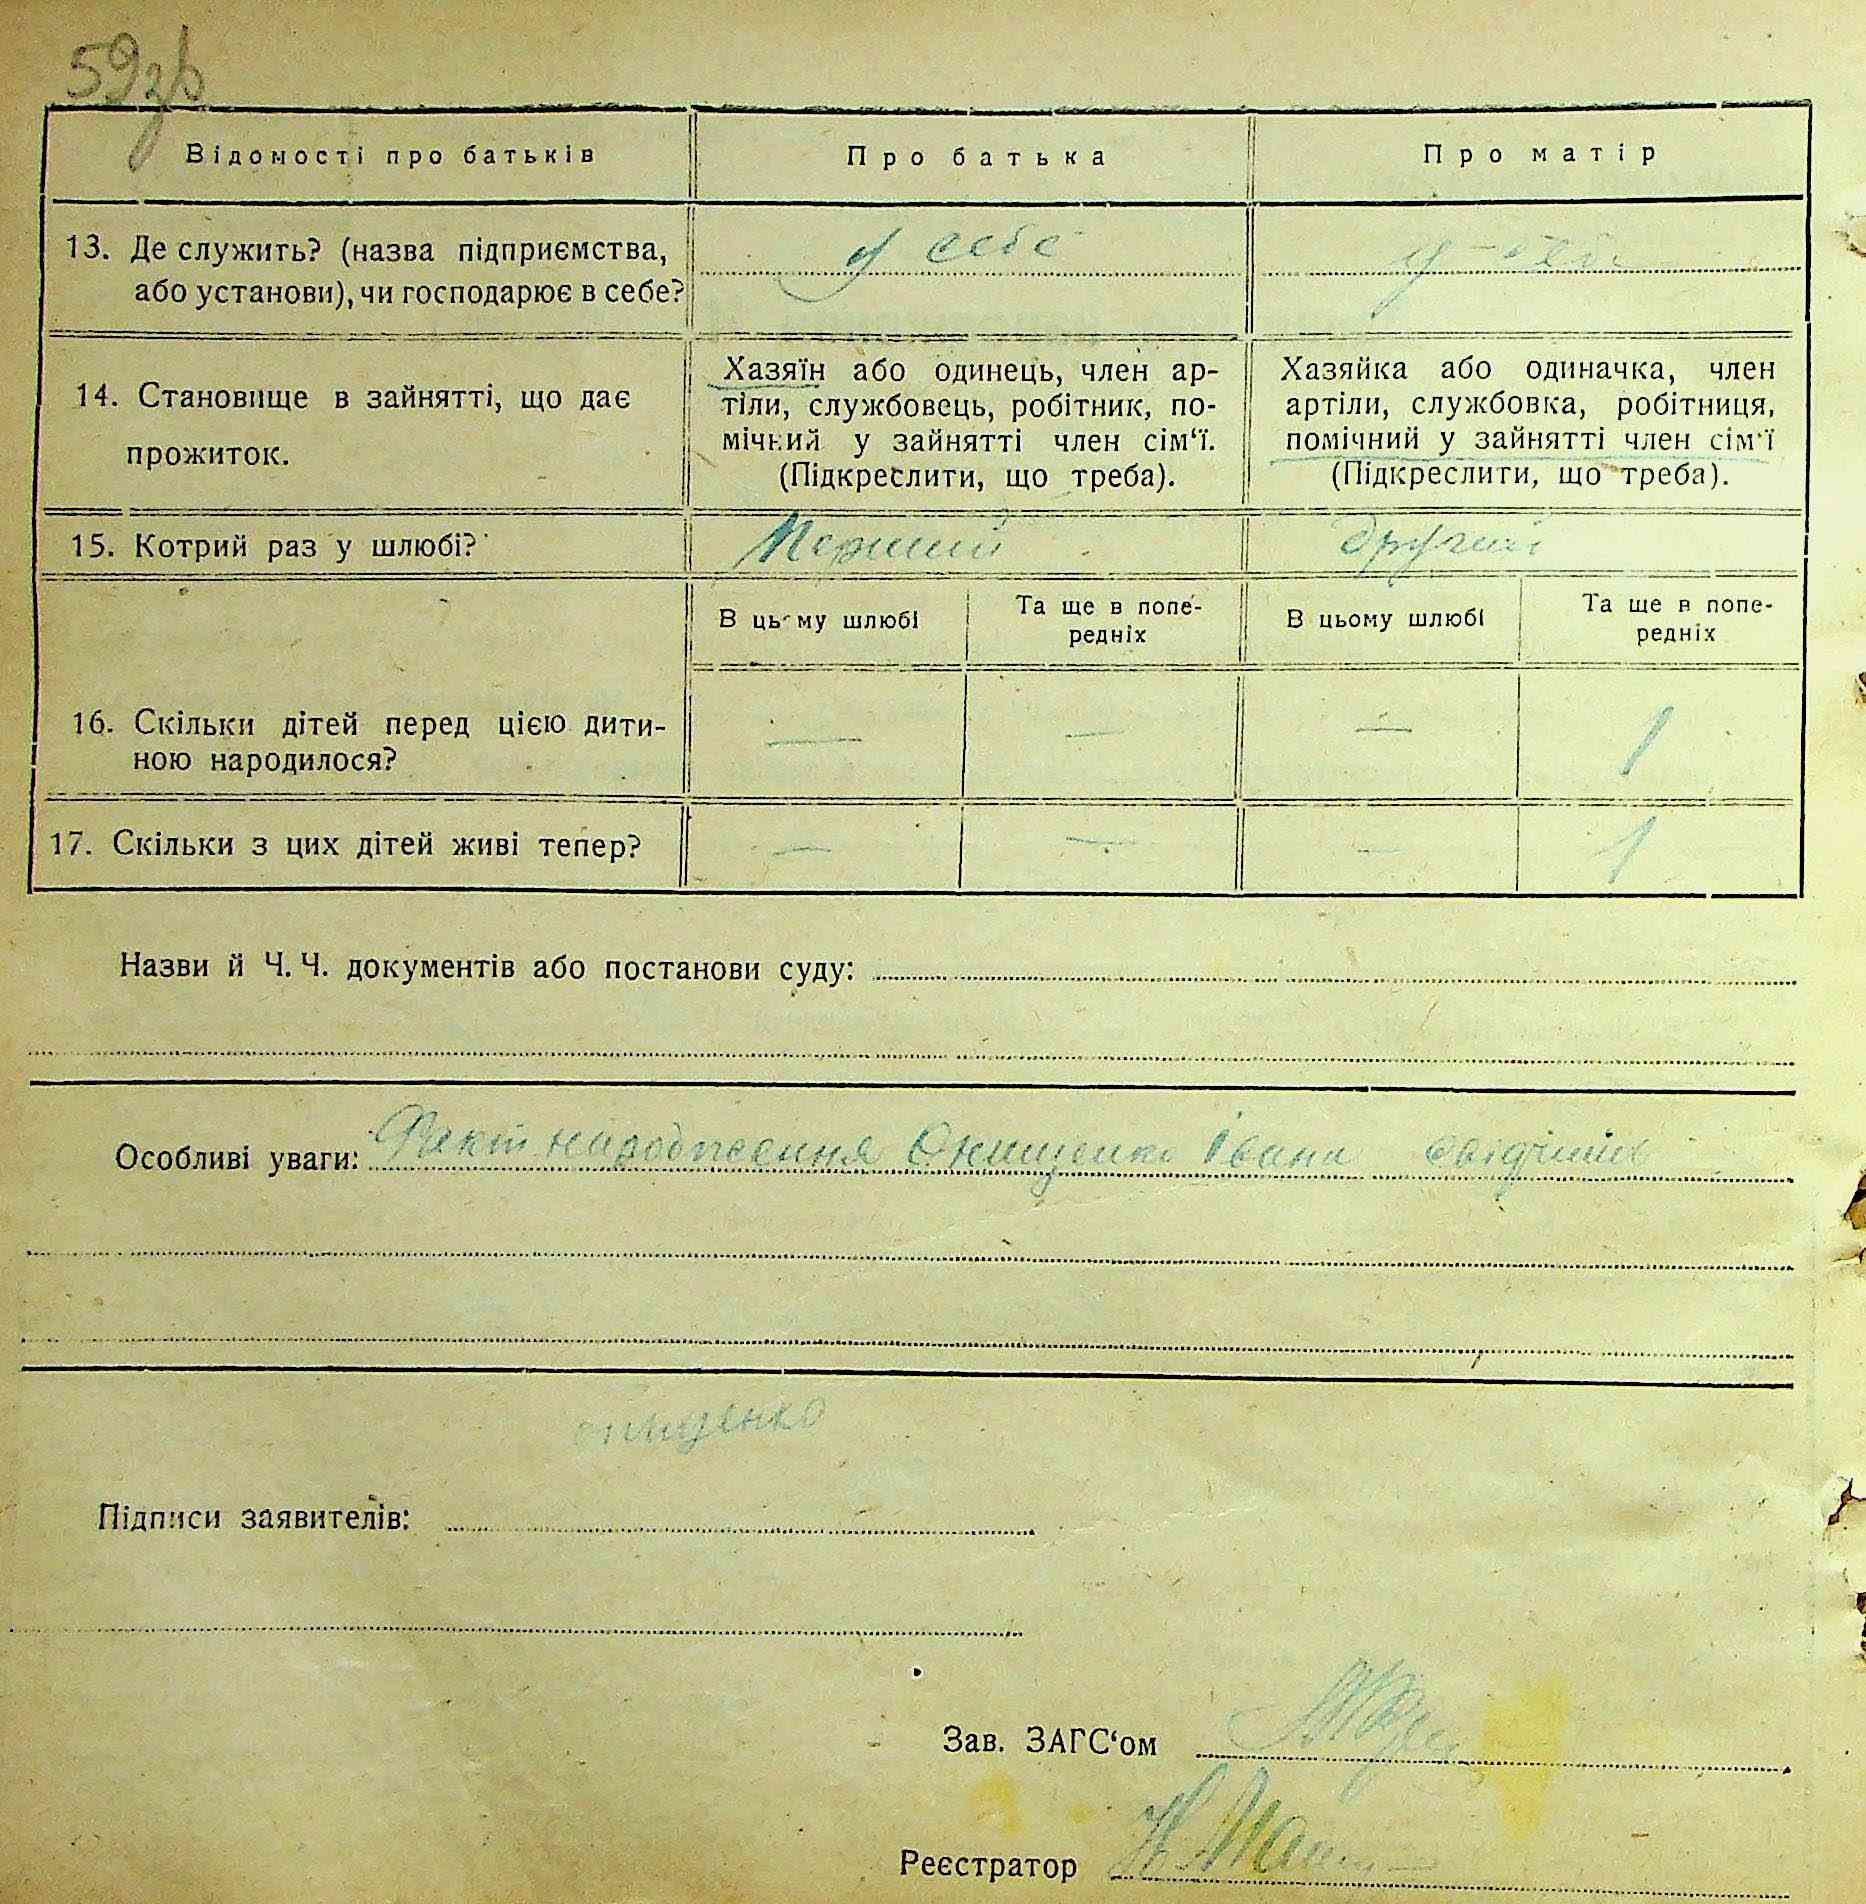 59зв
Відомості про батьків Про батька Про матір
13. Де служить? (назва підприємства, або установи), чи господарює в себе? у себе у себе
14. Становище в зайнятті, що дає прожиток.
Хазяїн або одинець, член ар-
тіли, службовець, робітник, по-
мічний у зайнятті член сім‘ї.
(Підкреслити, що треба).
Хазяйка або одиначка, член
артіли, службовка, робітниця,
помічний у зайнятті член сім‘ї
(Підкреслити, що треба).
15. Котрий раз у шлюбі? Перший другий
В цьому шлюбі Та ще в попе-
редніх
В цьому шлюбі Та ще в попе-
редніх
16. Скільки дітей перед цією дити-
ною народилося? — — — 1
17. Скільки з цих дітей живі тепер? — — — 1
Назви й Ч. Ч. документів або постанови суду:
Особливі уваги: Факт народження Онищенко Івана
онищенко
Підписи заявителів:
Зав. ЗАГС‘ом
Реєстратор